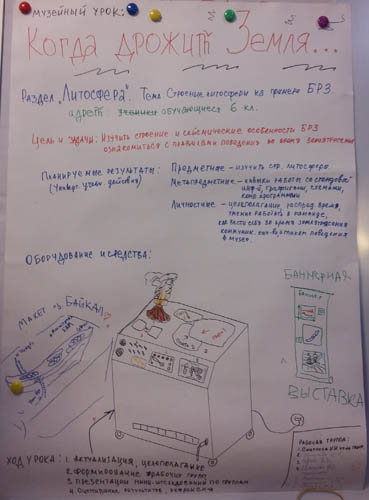 МУЗЕЙНЫЙ УРОК:
КОГДА ДРОЖИТ ЗЕМЛЯ...
РАЗДЕЛ „ЛИТОСФЕРА". ТЕМА: СТРОЕНИЕ ЛИТОСФЕРЫ НА ПРИМЕРЕ БРЗ.
АДРЕСАТ: обучающиеся 6 КЛ.
ЦЕЛЬ и ЗАДАЧИ: ИЗУЧИТЬ СТРОЕНИЕ и СЕЙСМИЧЕСКИЕ ОСОБЕННОСТИ БРЗ
ОЗНАКОМИТЬСЯ С ПРАВИЛАМИ ПОВЕДЕНИЯ ВО ВРЕМЯ ЗЕМЛЕТРЯСЕНИЯ
ПЛАНИРУЕМЫЕ РЕЗУЛЬТАТЫ:
(Универс. учебн. действия)
ПРЕДМЕТНЫЕ – ИЗУЧИТЬ СТР. ЛИТОСФЕРЫ
МЕТАПРЕДМЕТНЫЕ – НАВЫКИ РАБОТЫ СО СТЕНДОВОЙ
ИНФ-Й, ГРАФИКАМИ, СХЕМАМИ,
КОМП. ПРОГРАММАМИ
ЛИЧНОСТНЫЕ – ЦЕЛЕПОЛАГАНИЕ, РАСПРЕД. ВРЕМЯ,
УМЕНИЕ РАБОТАТЬ В КОМАНДЕ,
КАК ВЕСТИ СЕБЯ ВО ВРЕМЯ ЗЕМЛЕТРЯСЕНИЯ
ПОВЕДЕНИЯ
В МУЗЕЕ
ОБОРУДОВАНИЕ и СРЕДСТВА:
БАННЕРНАЯ
МАКЕТ "оз. БАЙКАЛ"
ВЫСТАВКА
РАБОЧАЯ ГРУППА:
ХОД УРОКА: 1. АКТУАЛИЗАЦИЯ, ЦЕЛЕПОЛАГАНИЕ
2. ФОРМИРОВАНИЕ РАБОЧИХ ГРУПП
3. ПРЕЗЕНТАЦИИ МИНИ-ИССЛЕДОВАНИЙ ПО ГРУППАМ
4. ОЦЕНИВАНИЕ РЕЗУЛЬТАТОВ, РЕФЛЕКСИЯ